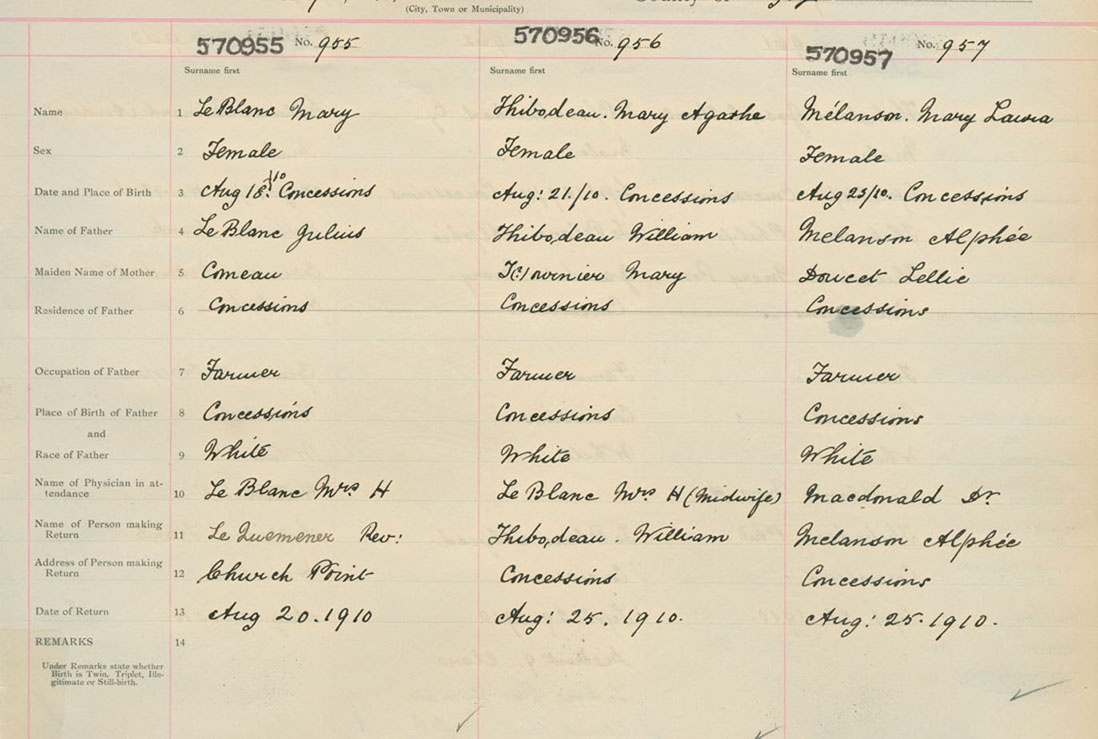 (City, Town or Municipality)
570955 No. 955 570956 No. 956 570957 No. 957
Surname first Surname first Surname first
Name 1 LeBlanc Mary Thibodeau. Mary Agathe Mélanson. Mary Laura
Sex 2 Female Female Female
Date and Place of Birth 3 Aug 18./10 Concessions Aug: 21./10. Concessions Aug 23/10. Concessions
Name of Father 4 LeBlanc Julius Thibodeau William Melanson Alphée
Maiden Name of Mother 5 Comeau Mary Doucet Lellie
Residence of Father 6 Concessions Concessions Concessions
Occupation of Father 7 Farmer Farmer Farmer
Place of Birth of Father 8 Concessions Concessions Concessions
and
Race of Father 9 White White White
Name of Physician in at-
tendance 10 Le Blanc Mrs H Le Blanc Mrs H (Midwife) Macdonald Dr.
Name of Person making
Return 11 Le Quemener Rev: Thibodeau. William Melanson Alphée
Address of Person making
Return 12 Church Point Concessions Concessions
Date of Return 13 Aug 20. 1910 Aug: 25. 1910. Aug: 25. 1910.
REMARKS 14
Under Remarks state whether
Birth is Twin, Triplet, Ille-
gitimate or Still-birth.